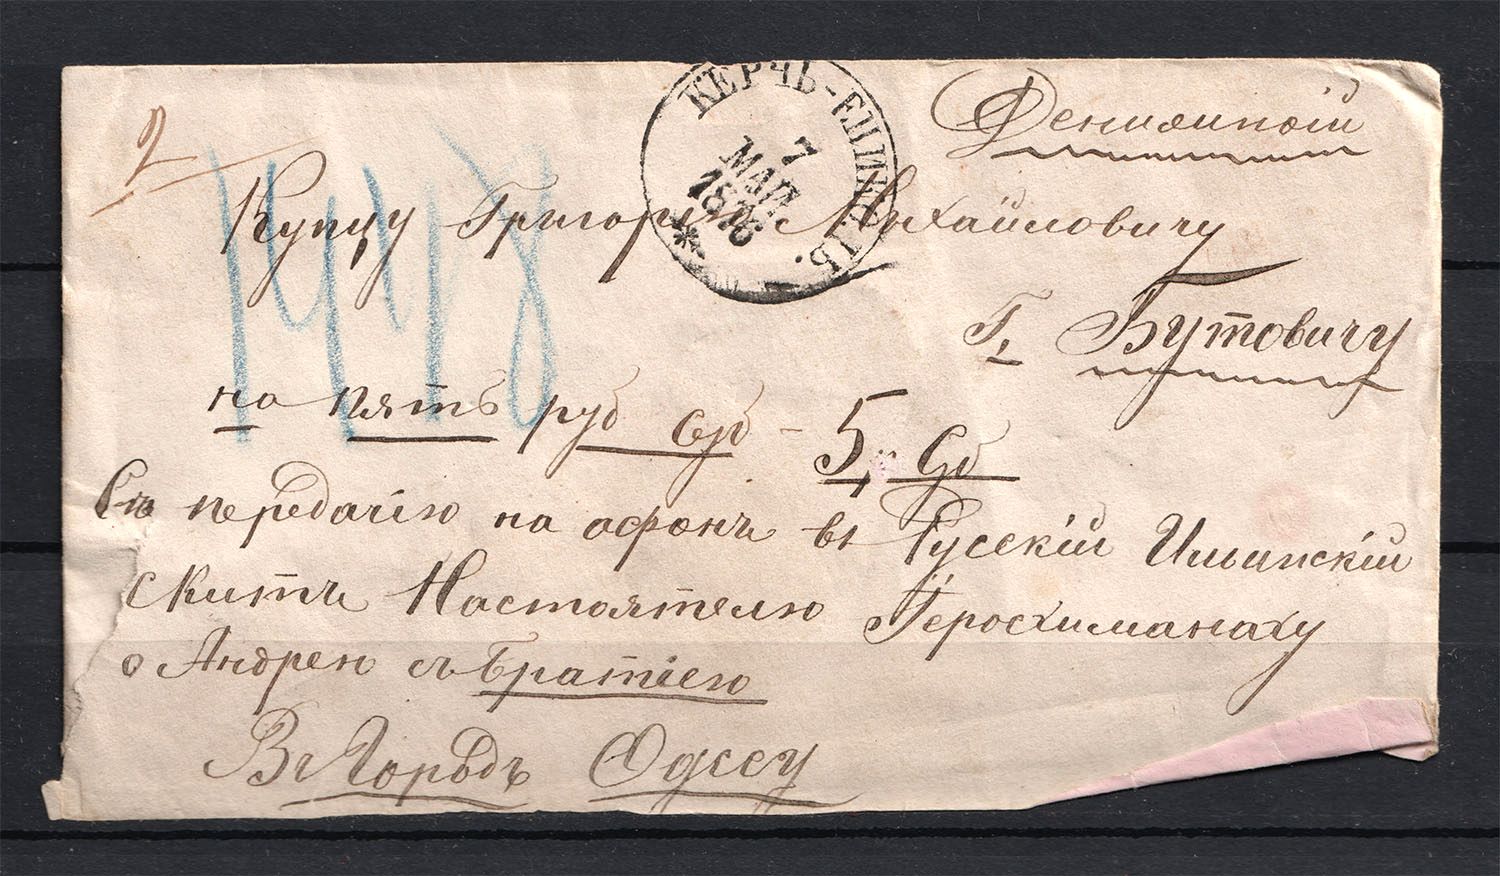 КЕРЧЬ-ЕНИКОЛЬ.
7
МАЯ
1876
Денижнкой
2
Купцу Григорію Михайловичу
Г, Бутовичу
на пять руб сер - 5, Сб
Съ передачію на афонъ въ Русскій Ильинскій
скитъ Настоятелю Іеросхимонаху
о Андрею съ братіею
Въ Городъ Одессу